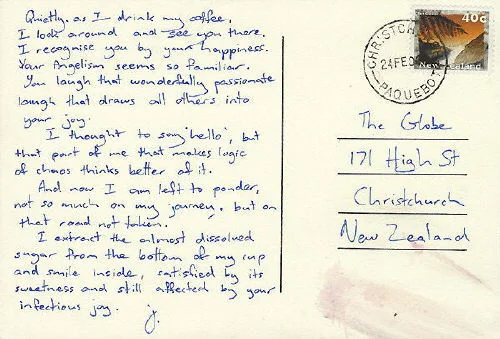 Quietly, as I drink my coffee,
I look around and see you there.
I recognise you by your happiness.
Your Angelism seems so familiar.
You laugh that wonderfully passionate
laugh that draws all others into
your joy.
I thought to say 'hello', but
that part of me that makes logic
of chaos thinks better of it.
And now I am left to ponder,
not so much on my journey, but on
that road not taken.
I extract the almost dissolved
sugar from the bottom of my cup
and smile inside, satisfied by its
sweetness and still affected by your
infectious joy. j.
40c
New Zealand
24 FE
PAQUEBOT
The Globe
171 High St
Christchurch
New Zealand